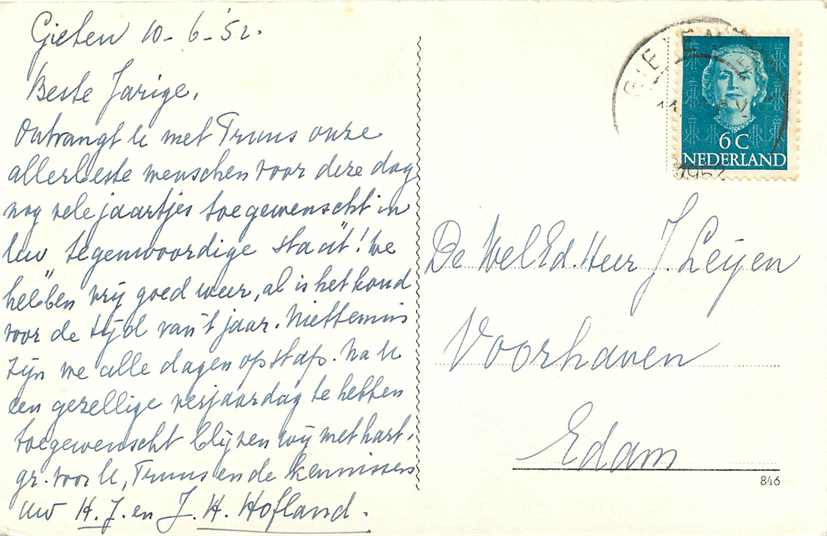 Gieten 10-6-'52.
Beste Jarige,
Ontvangt U met Truus onze
allerbeste menschen voor deze dag
nog vele jaartjes toegewenscht in
Uw "tegenwoordige staat"! We
hebben vrij goed weer, al is het koud
voor de tijd van 't jaar. Niettemin
zijn we alle dagen op stap. Na U
een gezellige verjaardag te hebben
toegewenscht blijven wij met hart.
gr. voor U, Truus en de kennissen
uw H. J. en J. H. Hofland.
6 C
NEDERLAND
De Wel Ed. Heer J. Leijen
Voorhaven
Edam
846